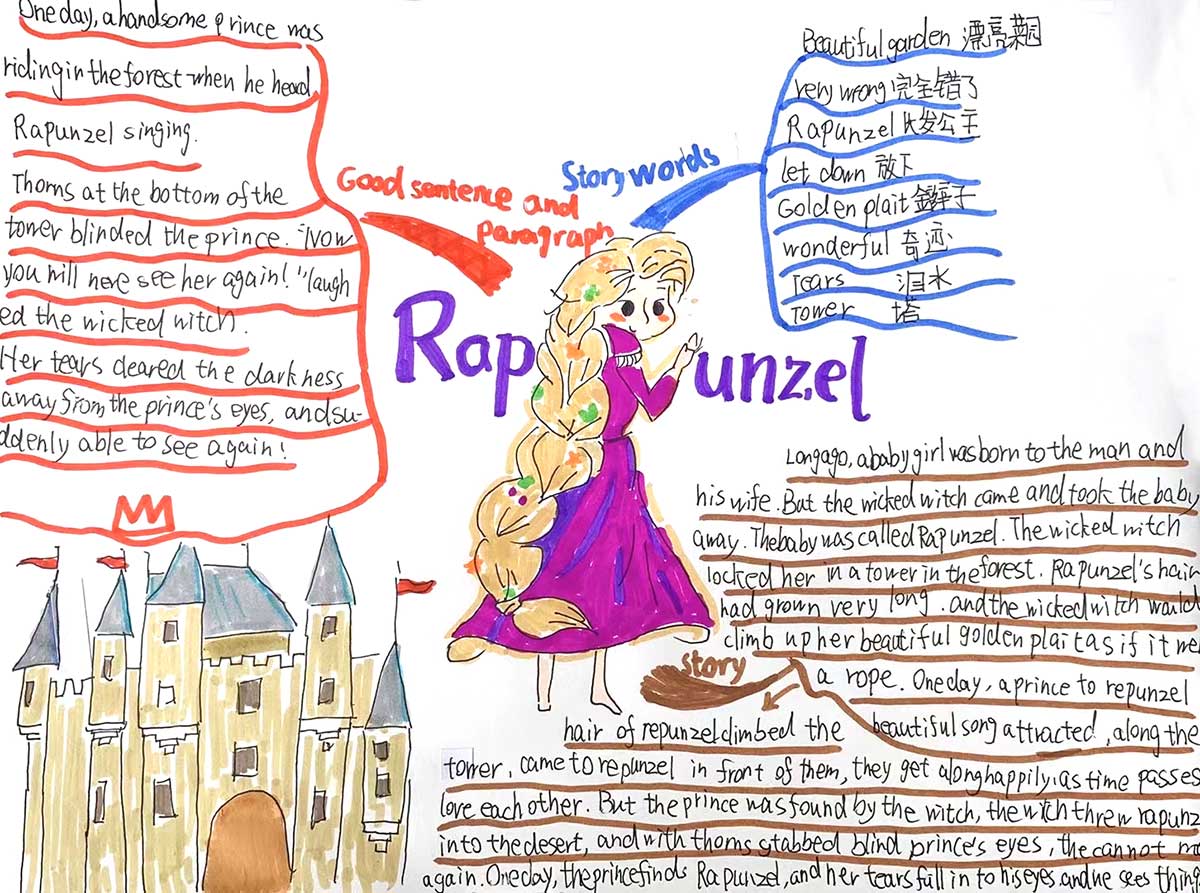 One day, a handsome prince was
riding in the forest when he heard
Rapunzel singing.
Thorns at the bottom of the
tower blinded the prince. "Now
you will neve see her again!" laugh
ed the wicked witch.
Her tears cleared the darkness
away from the prince's eyes, and su-
ddenly able to see again!
Good sentence and
Paragraph
Story words
Beautiful garden 漂亮菜园
very wrong 完全错了
Rapunzel 长发公主
let down 放下
Golden plait 金辫子
wonderful 奇迹
Tears 泪水
Tower 塔
Rapunzel
story
Long ago, a baby girl was born to the man and
his wife. But the wicked witch came and took the baby
away. The baby was called Rapunzel. The wicked witch
locked her in a tower in the forest. Rapunzel's hair
had grown very long. and the wicked witch would
climb up her beautiful golden plait as if it we
a rope. One day, a prince to repunzel
beautiful song attracted, along the
hair of repunzel climbed the
tower, came to repunzel in front of them, they get along happily. as time passes
love each other. But the prince was found by the witch, the witch threw rapunz
into the desert, and with thorns stabbed blind prince's eyes, the cannot me
again. One day, the prince finds Rapunzel, and her tears fall in to his eyes and he sees thin